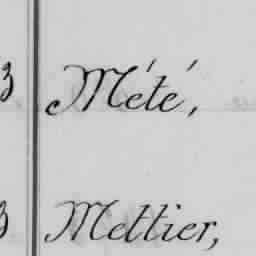 3 Mété,
3 Mettier,